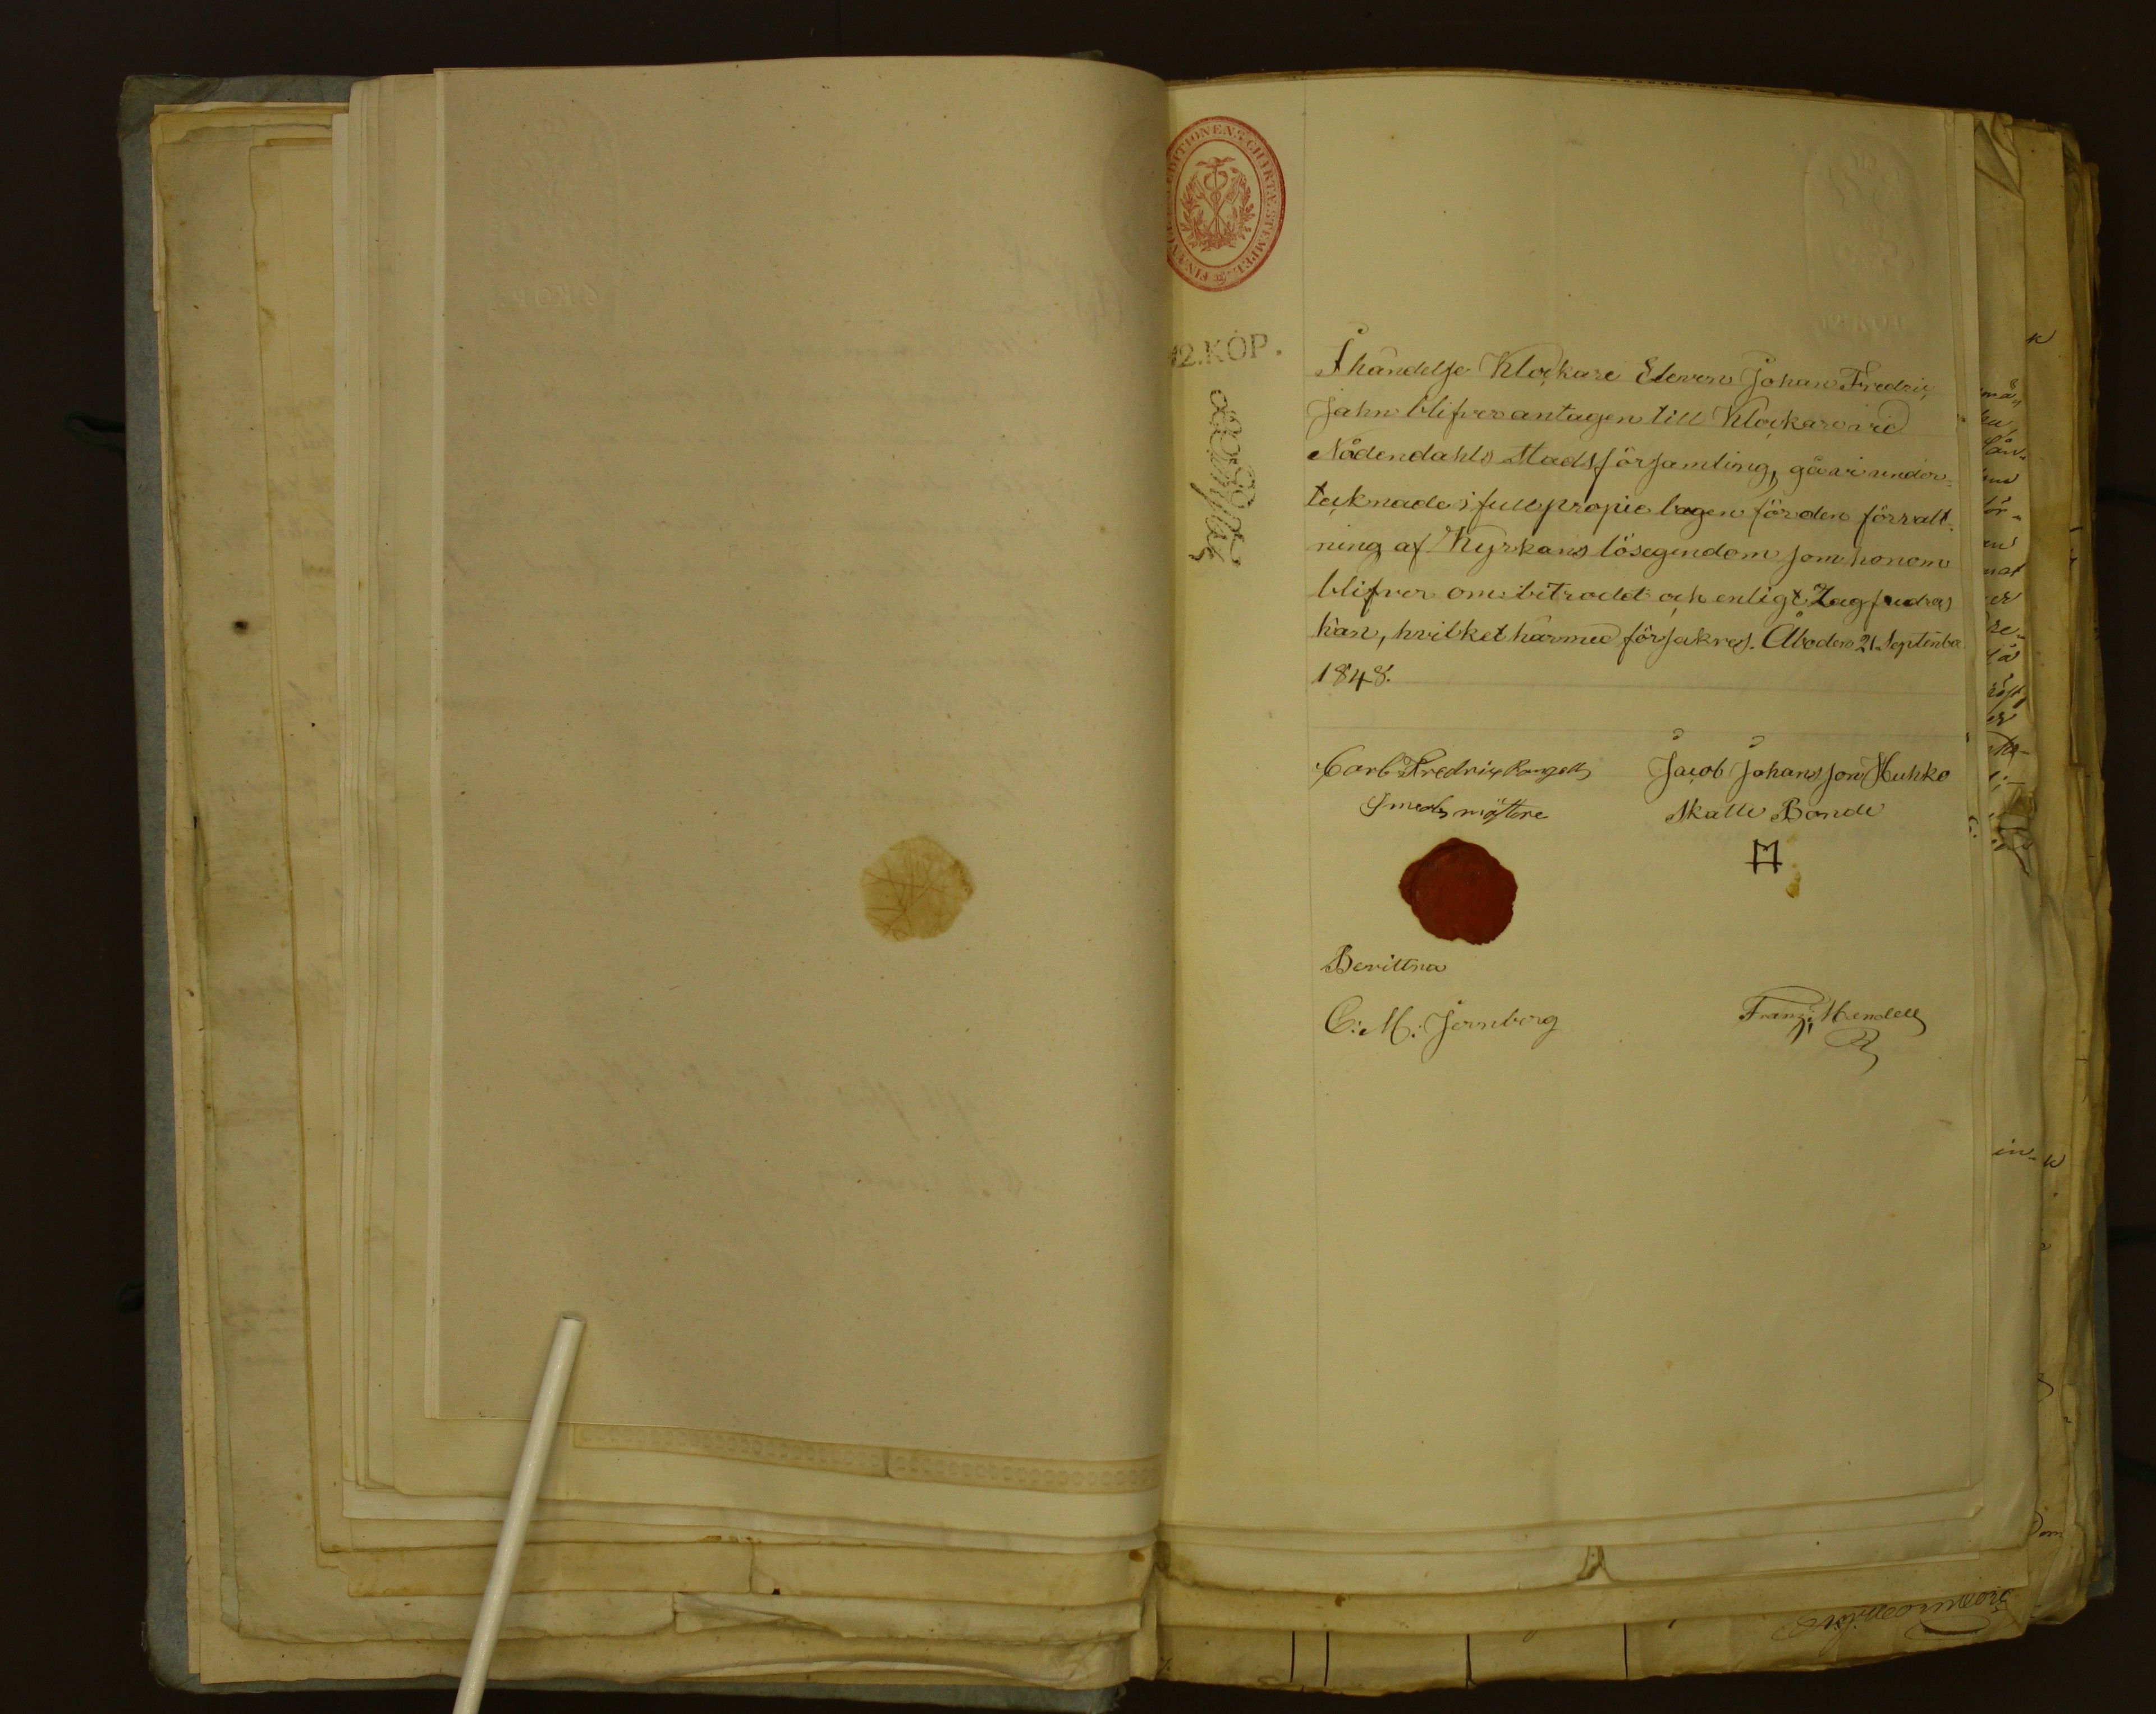 FINANCE EXPEDITIONENS CHARTÆ STEMPEL
12.KOP.
I händelse Klockare Eleven Johan Fredric
Jahn blifver antagen till Klockare vid
Nådendahls Stadsförsamling, gå vi under-
tecknade i full propie borgen för den förvalt-
ning af Kyrkans lösegendom som honom
blifver ombetrodd och enligt Lag fordras
kan, hvilket härmed försäkras. Åbo den 21 September
1848.
Carl Fredric Rangell Jacob Johansson Huhko
Smedsmästare Skatte Bonde
Bevittna
C: M: Jernberg Franz Mendell